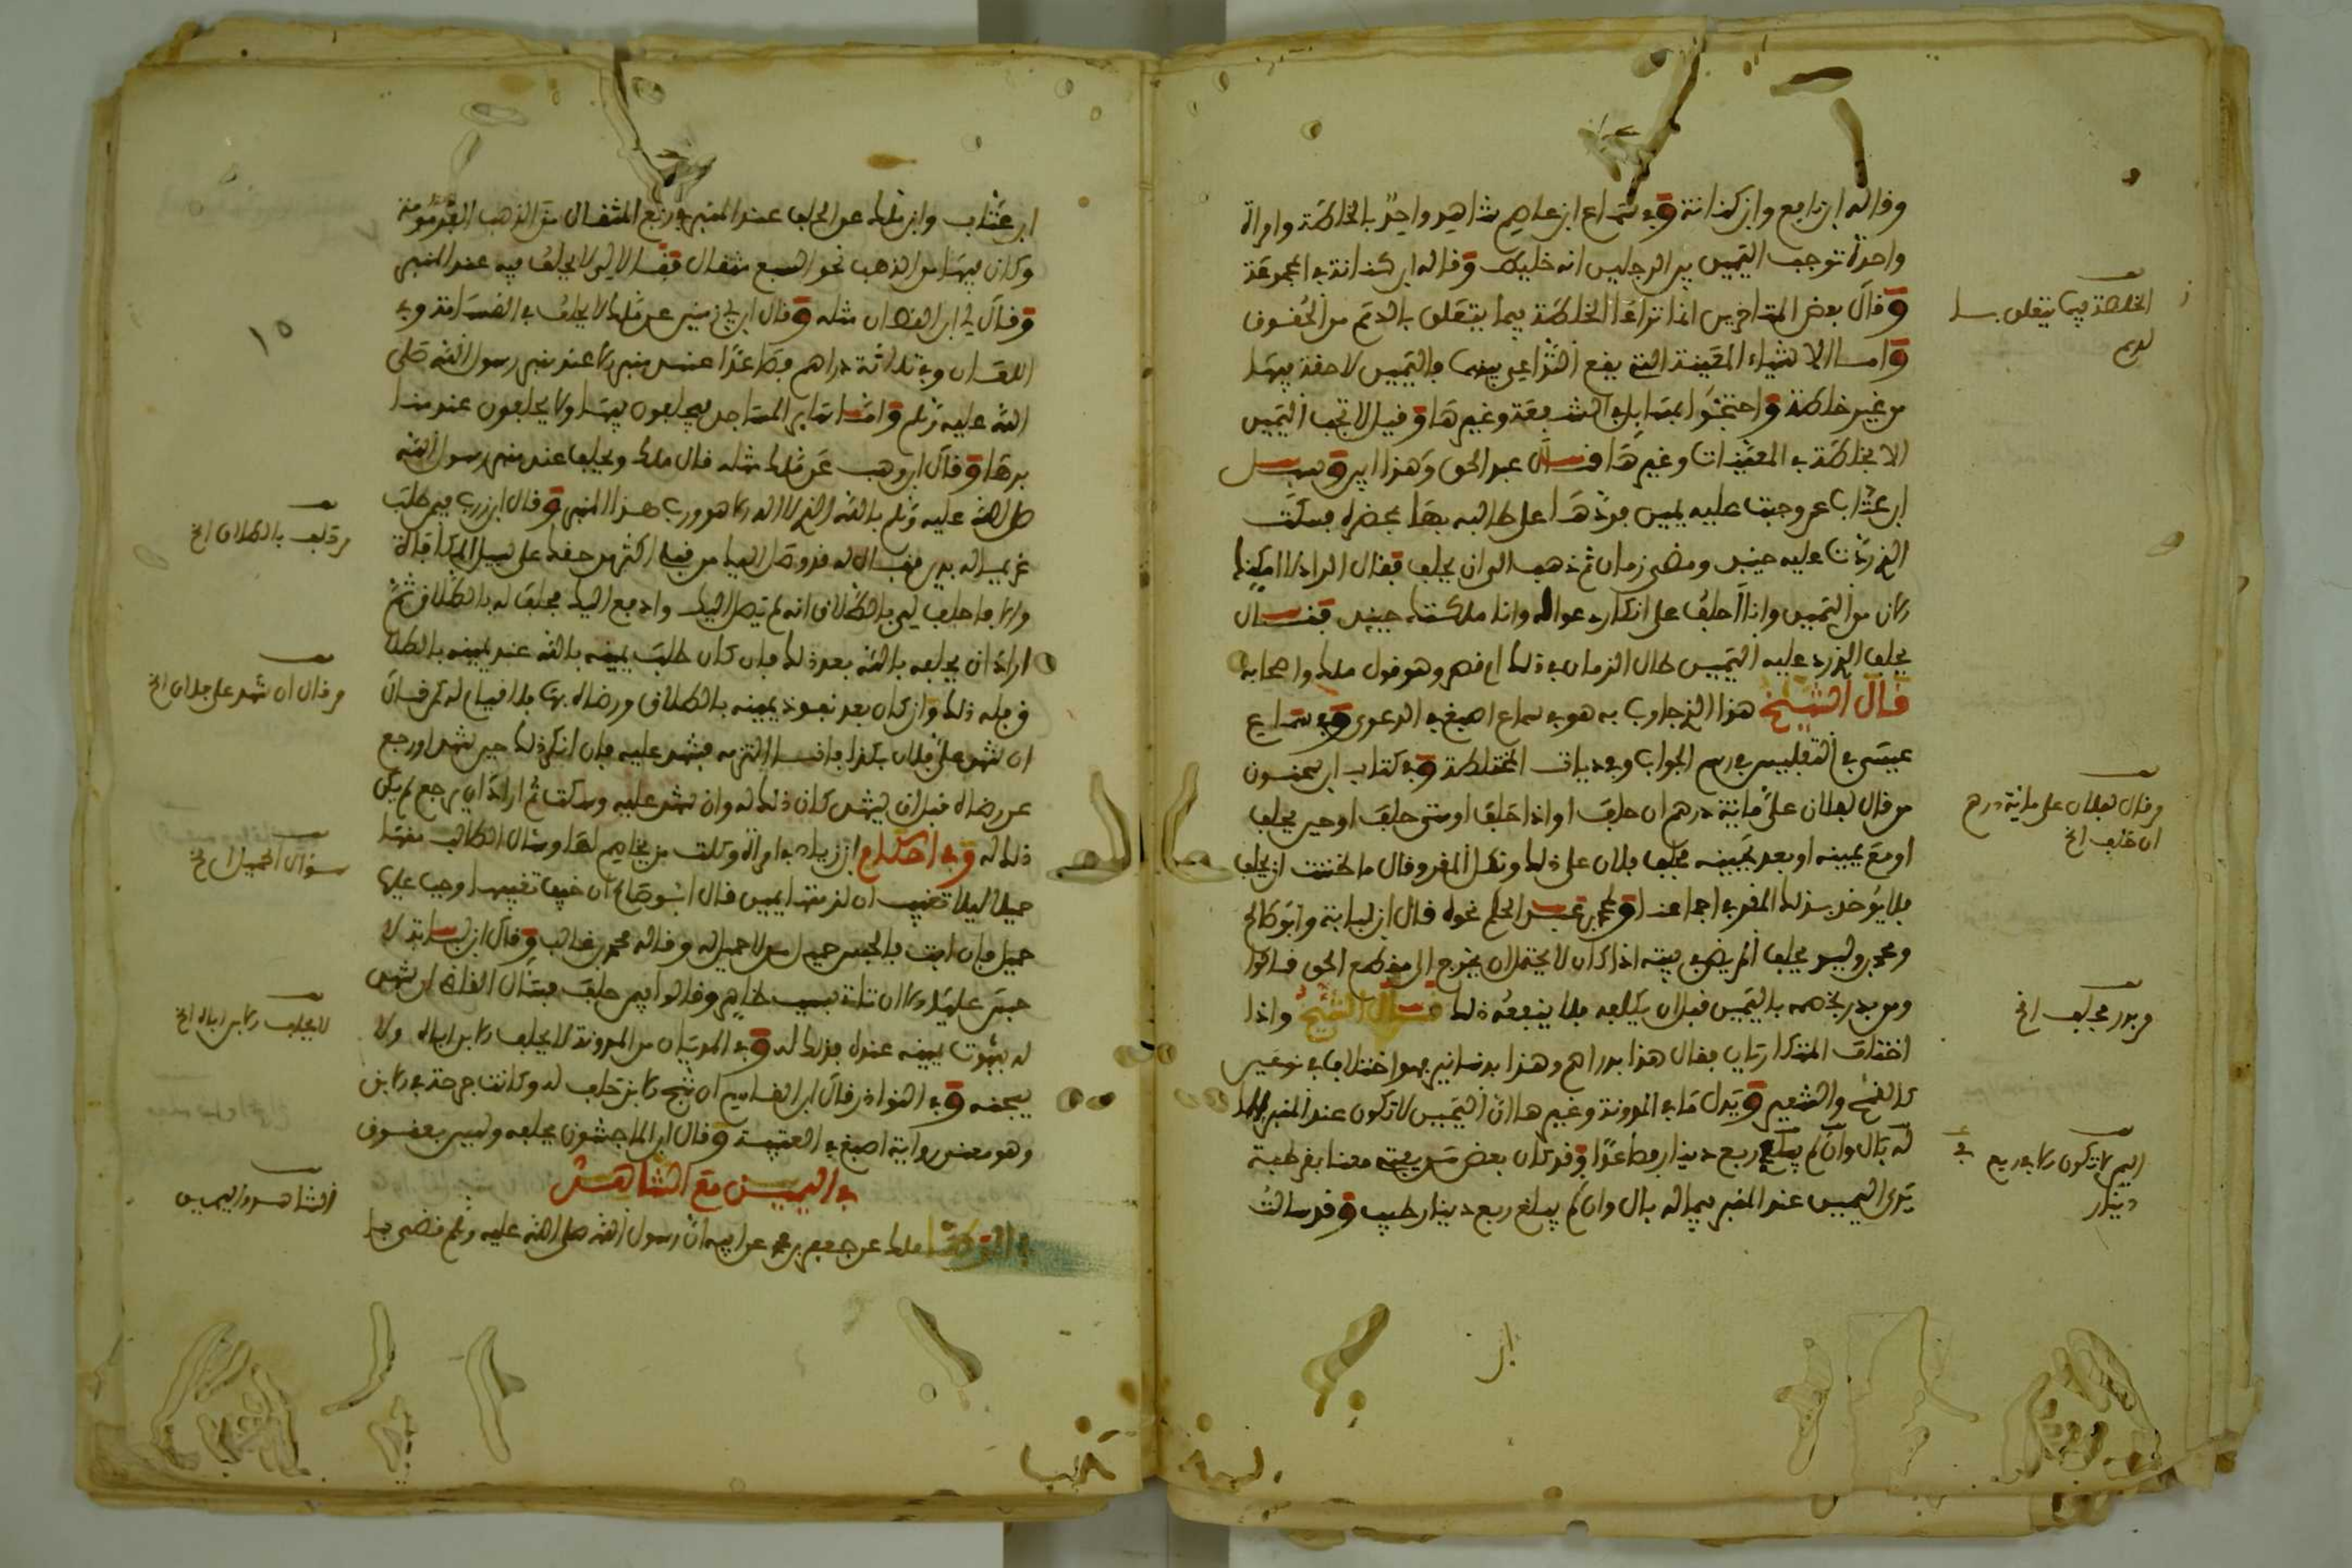 وقاله ابن نافع وابن كنانة وفي سماع ابن عاصم شاهد واحد بالخلطة وامراة
واحدة توجب اليمين بين الرجلين انه خليطه وقاله ابن كنانة في المجموعة
وقال بعض المتاخرين انما تراعا الخلطة فيما يتعلق بالذمم من الحقوق
واما الاشياء المعينة التي يقع التداعي بينهما فاليمين لاحقة فيها
من غير خلطة واحتجوا بمسايل في الشفعة وغيرها وقيل لا تجب اليمين
الا بخلطة في المعينات وغيرها قال عبد الحق وهذا ابين وسيل
ابن عتاب عن وجبت عليه يمين فردها على طالبه بها بمحضره فسكت
الذي ردت عليه حينين ومضى زمان ثم ذهب الى ان يحلف فقال الراد
كان من اليمين وانا احلف على انكار دعواه وانا ملكته حينيذ فقال
يحلف الذي رد عليه اليمين طال الزمان في ذلك ام قصر وهو قول ملك واصحابه
قال الشيخ هذا الذي جاوب به هو في سماع اصبغ في الدعوى وفي سماع
عيسى في التفليس في رسم الجواب وفي ديات المختلطة وفي كتاب ابن سحنون
من قال لفلان علي ماية درهم ان حلف او اذا حلف او متى حلف او حين يحلف
او مع يمينه او بعد يمينه فحلف فلان على ذلك ونكل المقر وقال ما ظننت ان يحلف
فلا يوخذ بذلك المقر في اجماعنا ومحمد بن عبد الحكم نحوه قال ابن لبابة وابو صالح
ومحمد بن وليد يحلف المريض في بيته اذا كان لا يحتمل ان يخرج الى مقطع الحق قالوا
ومن بدر خصمه باليمين قبل ان يكلفه فلا ينفعه ذلك قال الشيخ واذا
اختلف المتكاريان فقال هذا بدراهم وهذا بدنانير فهو اختلاف في نوعين
كالقمح والشعير ويدل ما في المدونة وغيرها ان اليمين لا تكون عند المنبر
له بال وان لم يبلغ ربع دينار فصاعدا وقد كان بعض معنا بقرطبة
يرى اليمين عند المنبر فيما له بال وان لم يبلغ ربع دينار طيب وقد سالت
الخلطة فيما يتعلق
لديم
من قال لفلان علي ماية درهم
ان حلف الخ
من بدر بحلف الخ
اليمين لا تكون في ربع
دينار
ابن
ابن عتاب وابن ملك عن الحلف عند المنبر في ربع المثقال من الذهب القرمونية
وكان فيها من الذهب نحو السبع مثقال فقالا لي لا يحلف فيه عند المنبر
وقال لي ابن القطان مثله وقال ابن ابي زمنين عن ملك لا يحلف في القسامة وفي
اللعان وفي ثلاثة دراهم فصاعدا عند منبر الا عند منبر رسول الله صلى
الله عليه وسلم واما ساير المساجد فيحلفون فيها ولا يحلفون عند
برها وقال ابن وهب عن ملك مثله قال ملك ويحلف عند منبر رسول الله
صلى الله عليه وسلم بالله الذي لا اله الا هو ورب هذا المنبر وقال ابن زرب فيمن طلب
غريمه له بدين فقال له قد وصل اليك من قبلي اكثر من حقك على سبيل المكافاة
والا فاحلف لي بالطلاق انه لم يصل اليك وادفع اليك فحلف له بالطلاق ثم
اراد ان يحلفه بالله بعد ذلك فان كان طلب يمينه بالله عند يمينه بالطلاق
فله ذلك وان كان بعد نفوذ يمينه بالطلاق ورضاه بها فلا قيام له كمن قال
ان شهد علي فلان بكذا فانا التزمه فشهد عليه فان انكر ذلك حين شهد او رجع
عن رضاه قبل ان يشهد كان ذلك له وان شهد عليه وسكت ثم اراد ان يرجع لم يكن
ذلك له وفي احكام ابن زياد في امراة وكلت من يخاصم لها وسال الطالب منها
حميلا ليلا تغيب ان لزمتها يمين قال ابو صالح ان خيف تغيبها وجب عليها
حميل فان ابت فالحبس حميل من لا حميل له وقاله محمد بن غالب وقال ابن لبابة لا
حبس عليها الا ان تاتي بسبب ظاهر وقالوا فيمن حلف فسال القاضي ان يشهد
له بثبوت يمينه عنده فذلك له وفي المديان من المدونة لا يحلف الابن اباه ولا
يسجنه وفي النوادر قال ابن القاسم ان شح الابن حلف له وكانت جرحة في الابن
وهو معنى رواية اصبغ في العتبية وقال ابن الماجشون يحلفه وليس بعقوق
في اليمين مع الشاهد
في الموطا ملك عن جعفر بن محمد عن ابيه ان رسول الله صلى الله عليه وسلم قضى
١٥
من حلف بالطلاق الخ
من قال ان شهد علي فلان الخ
سؤال الحميل الخ
لا يحلف الابن اباه الخ
الشاهد واليمين